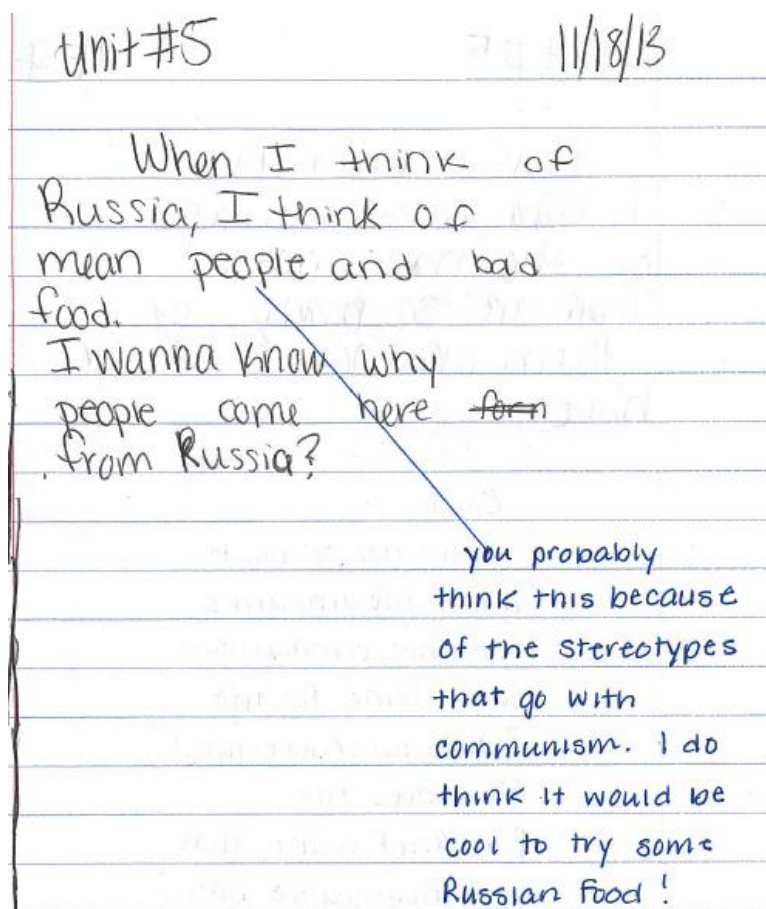 Unit#5 11/18/13
When I think of
Russia, I think of
mean people and bad
food.
I wanna know why
people come here
from Russia?
you probably
think this because
of the stereotypes
that go with
communism. I do
think it would be
cool to try some
Russian Food!